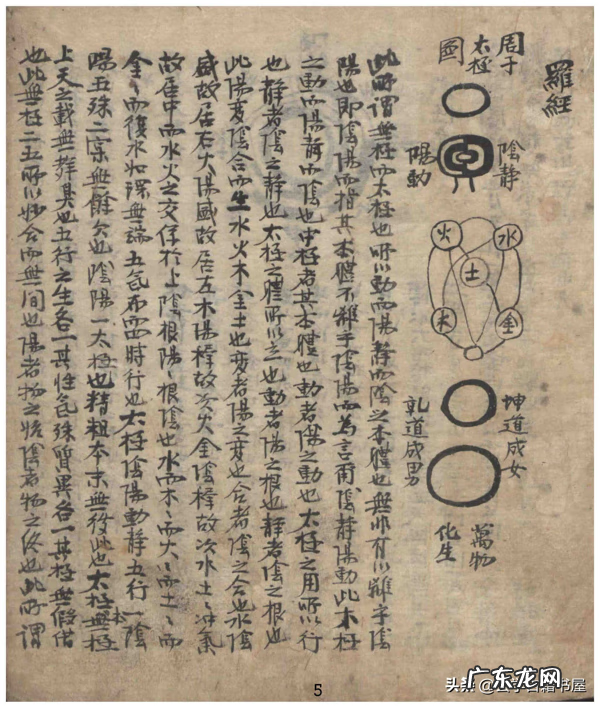 羅經
周子
太極
圖
陰静
陽動
水
火
土
金
木
坤道成女
乾道成男
萬物
化生
此所謂無極而太極也所以動而陽静而陰之本體也無非有以離乎陰
陽也即陰陽而指其本體不雜乎陰陽而為言爾陰静陽動此木極
之動而陽静而陰也中極者其本體也動者陽之動也太極之用所以行
也静者陰之静也太極之體所以立也動者陽之根也静者陰之根也
此陽变陰合而生水火木金土也变者陽之变也合者陰之合也水陰
盛故居右火陽盛故居左木陽稺故次火金陰稺故次水土冲氣
故居中而水火之交係於上陰根陽〻根陰也水而木〻而火〻而土〻而
金〻而復水如環無端五氣布而四時行也太極陰陽動静五行一陰
陽五殊二実無餘欠也陰陽一太極也精粗本末無彼此也太極本無極
上天之載無聲臭也五行之生各一其性氣殊質異各一其極無假借
也此無極二五所以妙合而無間也陽者物之始陰者物之終也此所謂
5
头条
古籍书屋
广东龙网